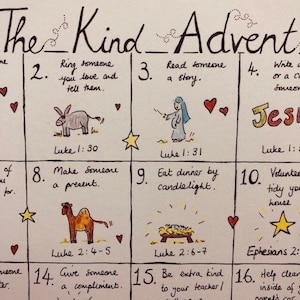 The Kind Advent
2. Ring someone
you love and
tell them.
Luke 1:30
3. Read someone
a story.
Luke 1:31
4. Write
or a c
someon
Jes
Luke 1:
of
for.
8. Make someone
a present.
Luke 2:4-5
9. Eat dinner by
candlelight.
Luke 2:6-7
10. Voluntee
tidy yo
house
Ephesians 2:
14. Give someone
a compliment.
15. Be extra kind
to your teacher/
16. Help clea
inside of